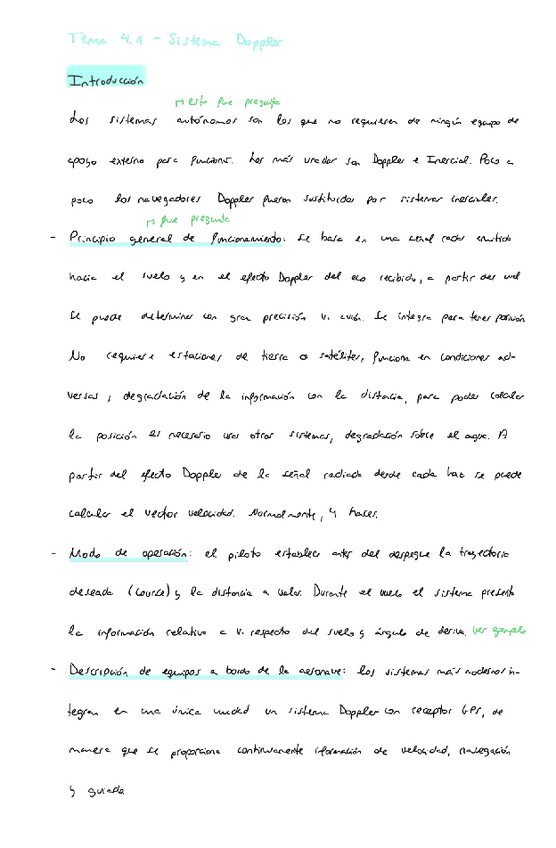 Tema 4.1 - Sistema Doppler
Introducción
↳ esto fue pregunta
Los sistemas autónomos son los que no requieren de ningún equipo de
apoyo externo para funcionar. Los más usados son Doppler e Inercial. Poco a
poco los navegadores Doppler fueron sustituidos por sistemas inerciales.
↳ fue pregunta
- Principio general de funcionamiento: Se basa en una señal radar emitida
hacia el suelo y en el efecto Doppler del eco recibido, a partir del cual
se puede determinar con gran precisión v. avión. Se integra para tener posición
No requiere estaciones de tierra o satélites, funciona en condiciones ad-
versas, degradación de la información con la distancia, para poder calcular
la posición es necesario usar otros sistemas, degradación sobre el agua. A
partir del efecto Doppler de la señal radiada desde cada haz se puede
calcular el vector velocidad. Normalmente, 4 haces.
- Modo de operación: el piloto establece antes del despegue la trayectoria
deseada (course) y la distancia a volar. Durante el vuelo el sistema presenta
la información relativa a v. respecto del suelo y ángulo de deriva. ver ejemplo
- Descripción de equipos a bordo de la aeronave: los sistemas más modernos in-
tegran en una única unidad un sistema Doppler con receptor GPS, de
manera que se proporciona continuamente información de velocidad, navegación
y guiada